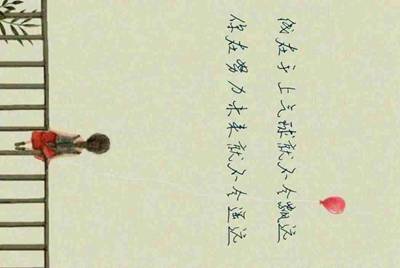 线在手上气球就不会飘远
你在努力未来就不会遥远